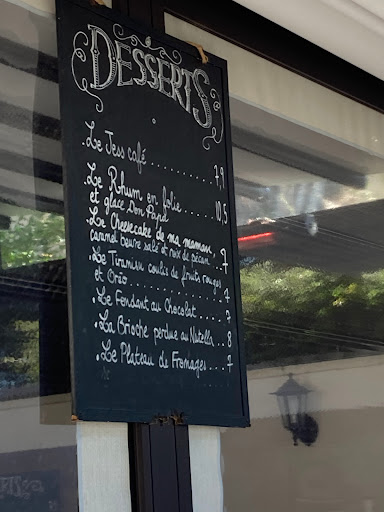 DESSERTS
. Le Jess café .......... 7,9
. Le Rhum en folie
et glace Don Papa ..... 10,5
. Le Cheesecake de ma maman
caramel beurre salé et noix de pécan .. 7
. Le Tiramisu coulis de fruits rouges
et Oréo ............... 7
. Le Fondant au Chocolat .... 7
. La Brioche perdue au Nutella .. 8
. Le Plateau de Fromages ... 7